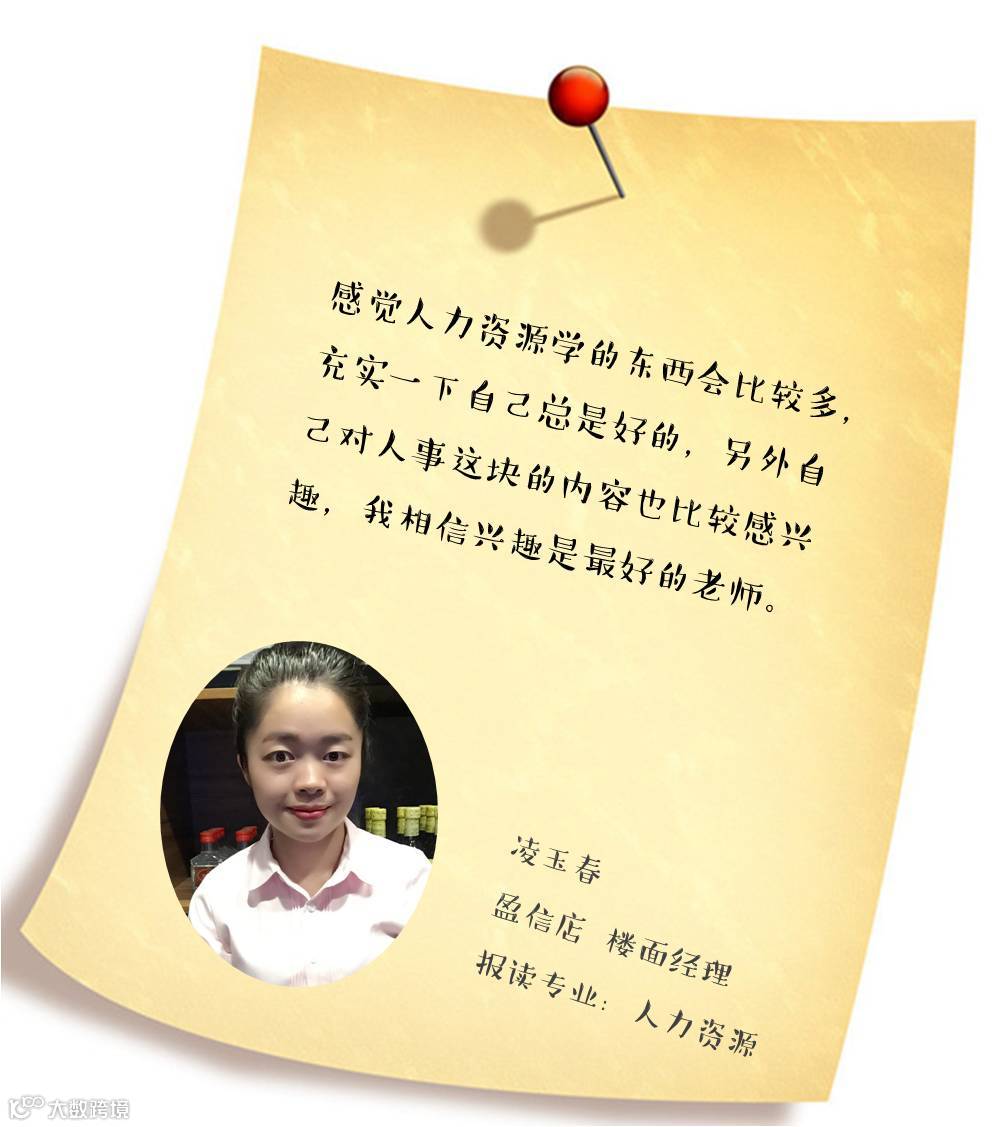 感觉人力资源学的东西会比较多，
充实一下自己总是好的，另外自
己对人事这块的内容也比较感兴
趣，我相信兴趣是最好的老师。
凌玉春
盈信店 楼面经理
报读专业：人力资源
大数跨境